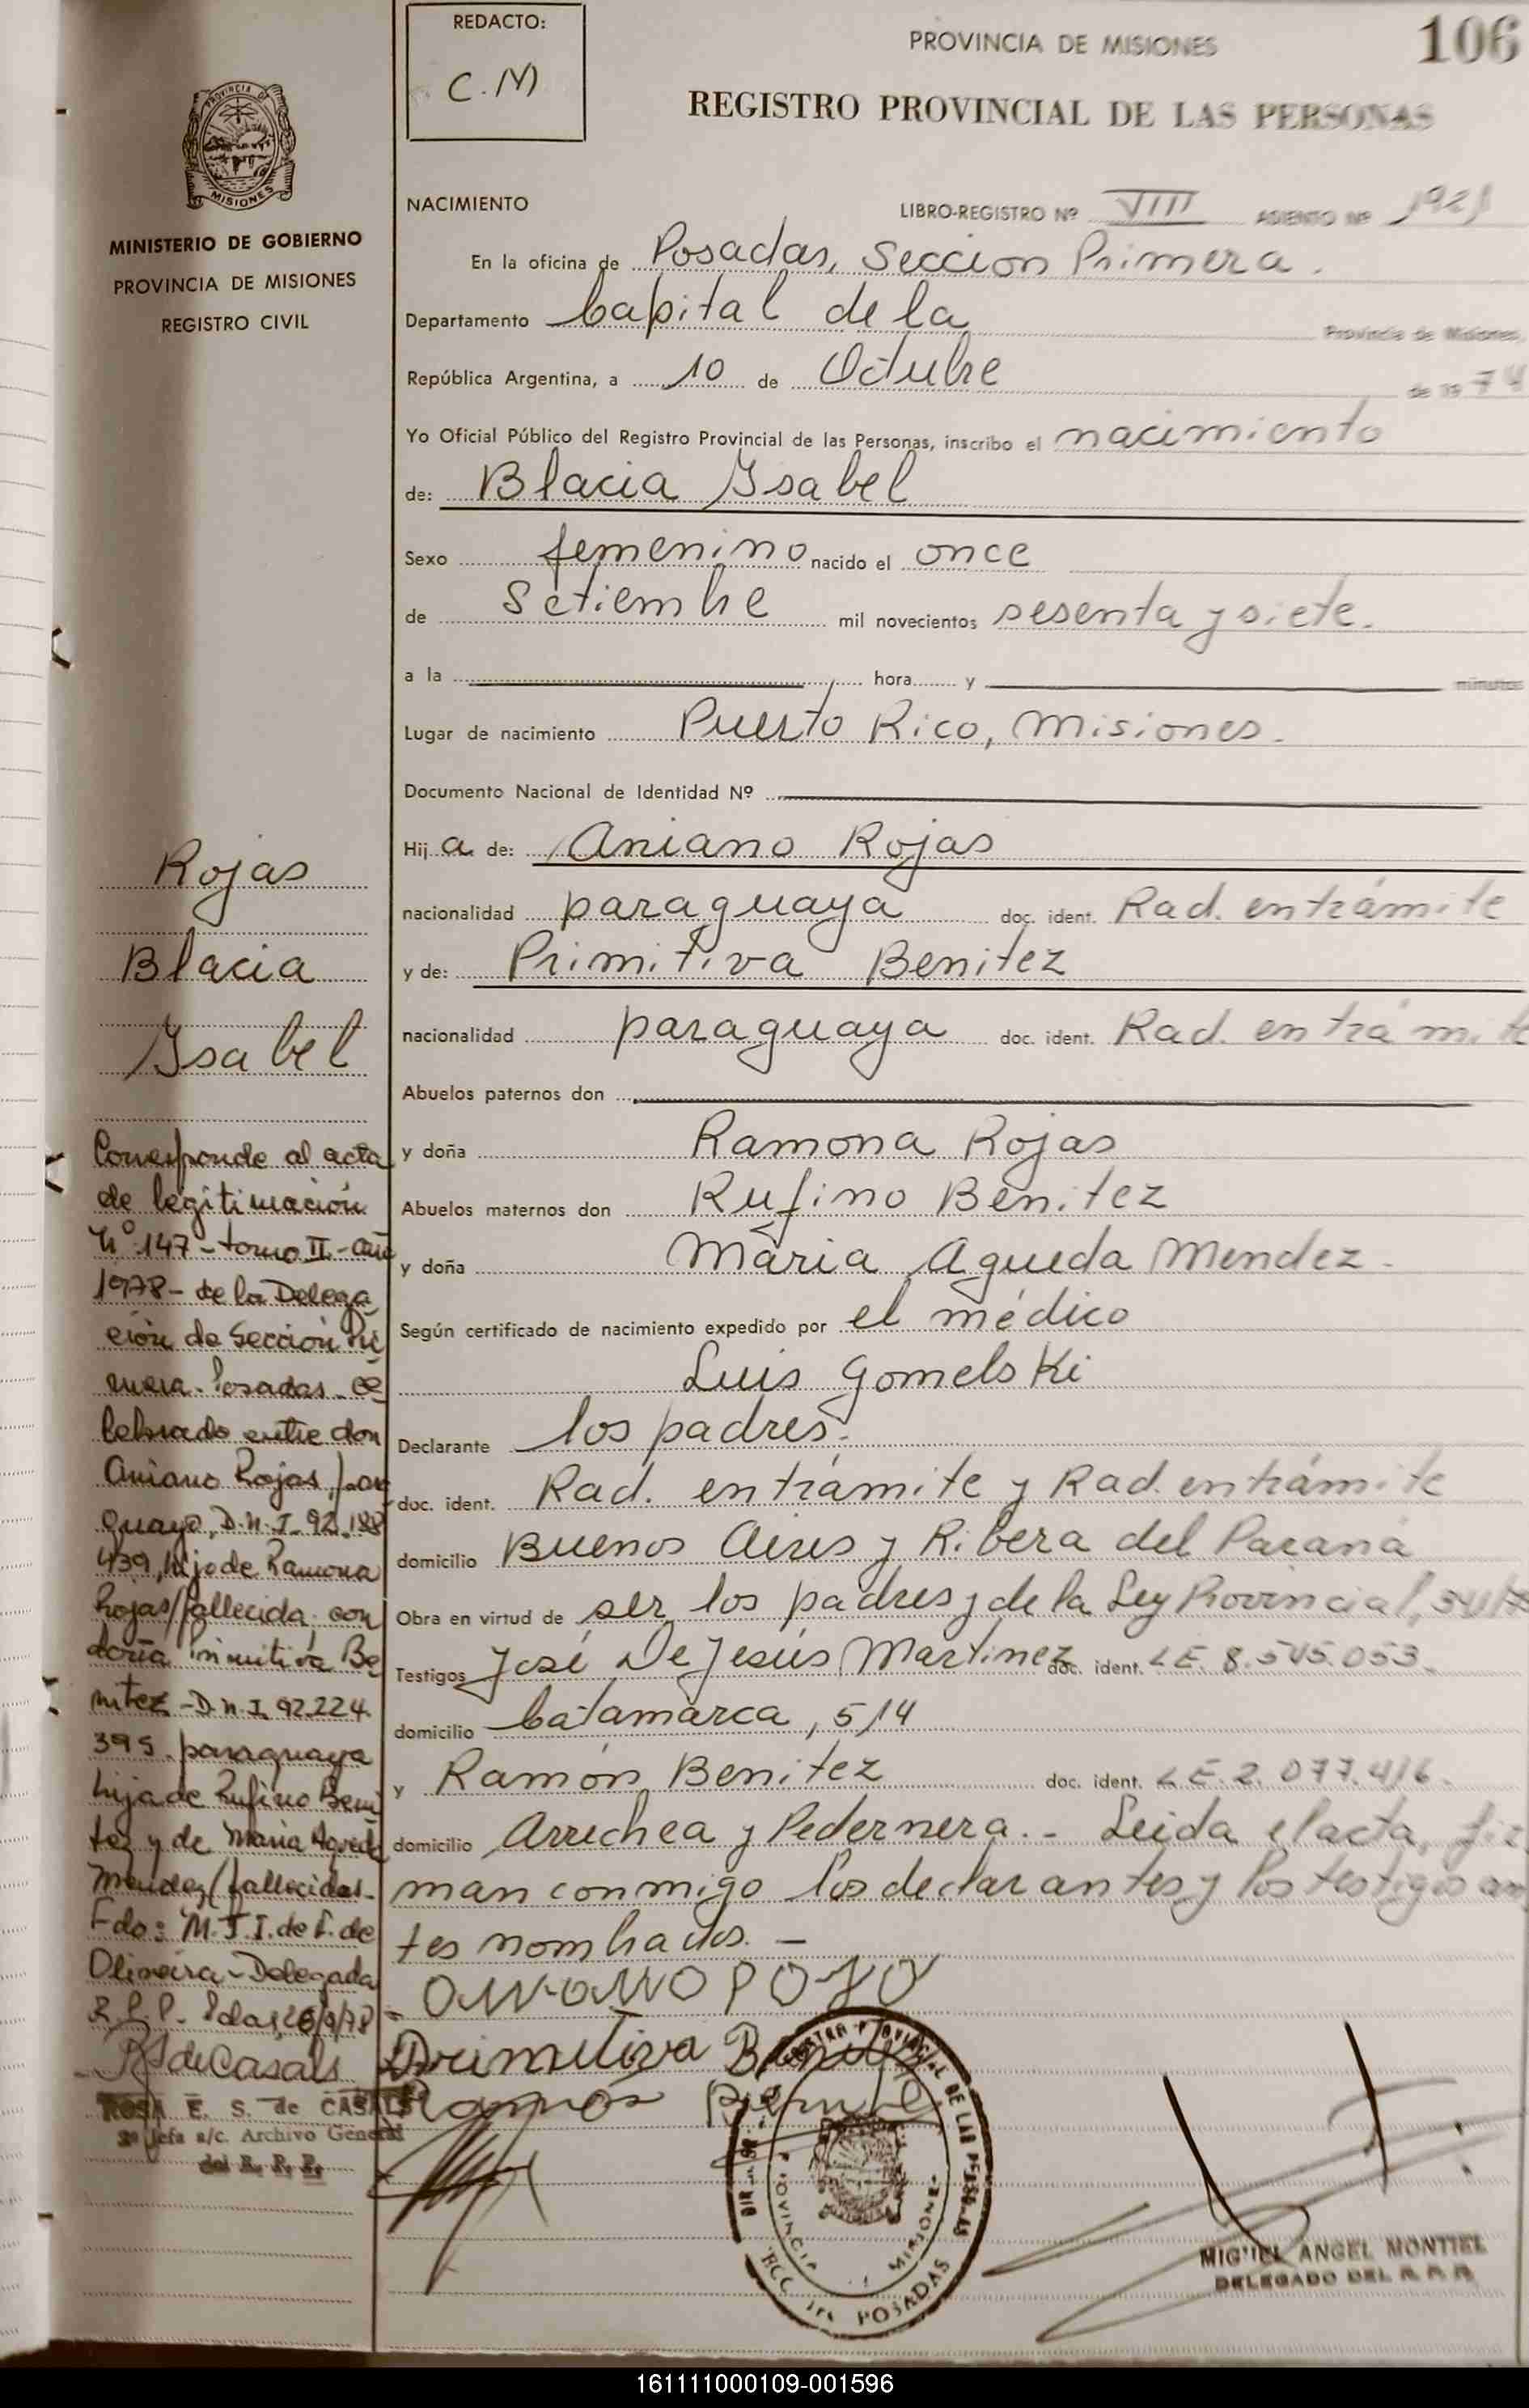 REDACTO:
C.M
PROVINCIA DE MISIONES
106
REGISTRO PROVINCIAL DE LAS PERSONAS
PROVINCIA DE
MISIONES
MINISTERIO DE GOBIERNO
PROVINCIA DE MISIONES
REGISTRO CIVIL
NACIMIENTO
LIBRO-REGISTRO Nº VIII ASIENTO Nº 1921
En la oficina de Posadas, Seccion Primera.
Departamento Capital de la Provincia de Misiones,
República Argentina, a 10 de Octubre de 1974
Yo Oficial Público del Registro Provincial de las Personas, inscribo el nacimiento
de: Blacia Ysabel
Sexo femenino nacido el once
de Setiembre mil novecientos sesenta y siete.
a la hora y minutos
Lugar de nacimiento Puerto Rico, Misiones.
Documento Nacional de Identidad Nº
Hij a de: Aniano Rojas
nacionalidad paraguaya doc. ident. Rad. en trámite
y de: Primitiva Benitez
nacionalidad paraguaya doc. ident. Rad. en trámite
Abuelos paternos don
y doña Ramona Rojas
Abuelos maternos don Rufino Benitez
y doña Maria Agueda Mendez.
Según certificado de nacimiento expedido por el médico
Luis Gomelski
Declarante los padres.
doc. ident. Rad. en trámite y Rad. en trámite
domicilio Buenos Aires y Ribera del Paraná
Obra en virtud de ser los padres y de la Ley Provincial,
Testigos José De Jesús Martinez doc. ident. L E. 8.545.053.
domicilio Catamarca, 514
y Ramón Benitez doc. ident. L E. 2.077.416.
domicilio Arrechea y Pedernera.- Leida el acta, fir
man conmigo los declarantes y los testigos an
tes nombrados. -
Rojas
Blacia
Ysabel
Corresponde al acta
de legitimación
Nº 147 - tomo II - año
1978 - de la Delega
ción de Sección Pri
mera - Posadas - ce
lebrado entre don
Aniano Rojas, par
guayo, D.N.I. 92.188
439, hijo de Ramona
Rojas/fallecida con
doña Primitiva Be
nitez - D.N.I. 92.224.
395. paraguaya
hija de Rufino Beni
tez y de Maria Agueda
Mendez/fallecidos.
Fdo: M.J.I. de F. de
Oliveira - Delegada
R.P.P. Pdas, 26/9/78
R S de Casals
ROSA E. S. de CASALS
2ª Jefa a/c. Archivo General
del R. P. P.
Primitiva Benitez
Ramón Benitez
PROVINCIA MISIONES
POSADAS
MIGUEL ANGEL MONTIEL
DELEGADO DEL R. P. P.
161111000109-001596